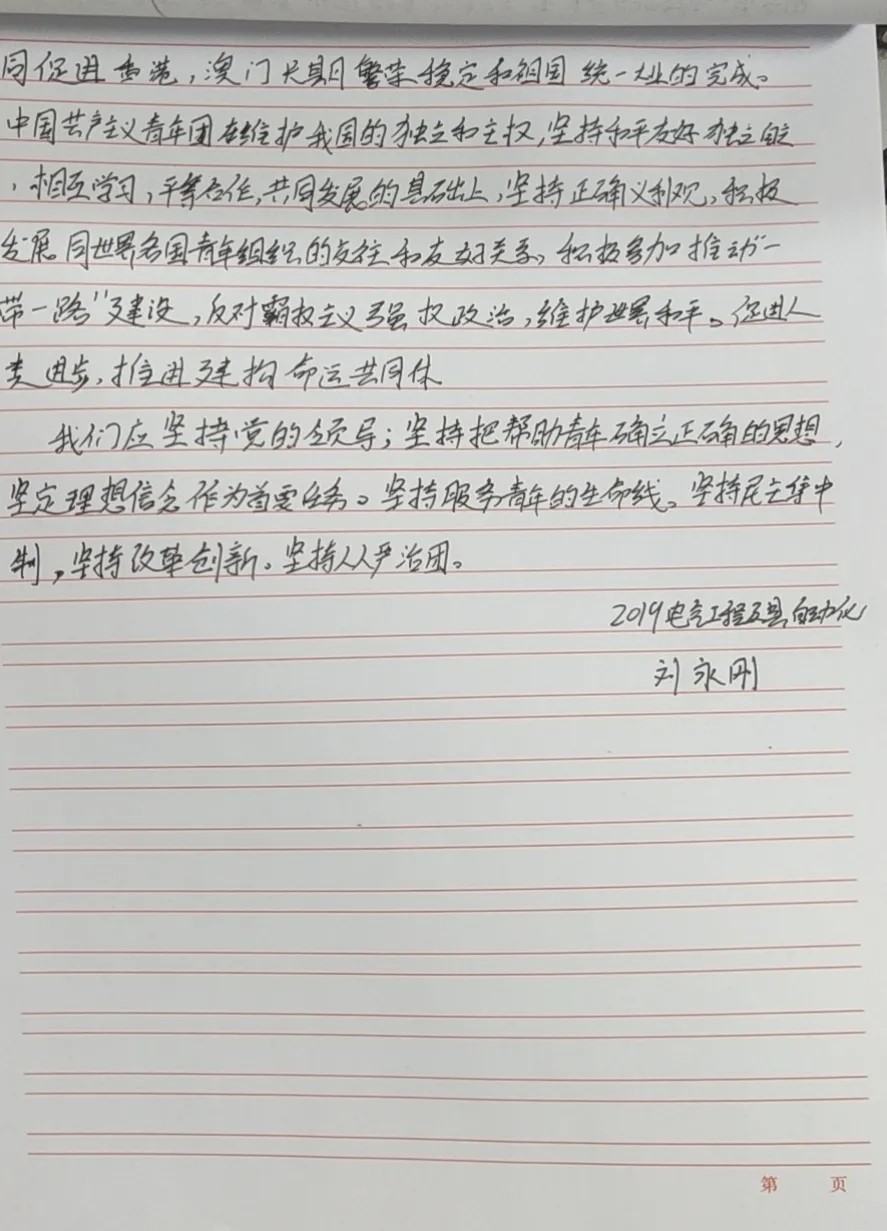 同促进香港，澳门长期繁荣稳定和祖国统一大业的完成。
中国共产主义青年团在维护我国的独立和主权，坚持和平友好独立自主
，相互学习，平等合作，共同发展的基础上，坚持正确义利观，积极
发展同世界各国青年组织的友往和友好关系，积极参加推动"一
带一路"建设，反对霸权主义强权政治，维护世界和平。促进人
类进步，推进建构命运共同体
我们应坚持党的领导；坚持把帮助青年确立正确的思想，
坚定理想信念作为首要任务。坚持服务青年的生命线。坚持民主集中
制，坚持改革创新。坚持从严治团。
2019电气工程及其自动化
刘永刚
第 页